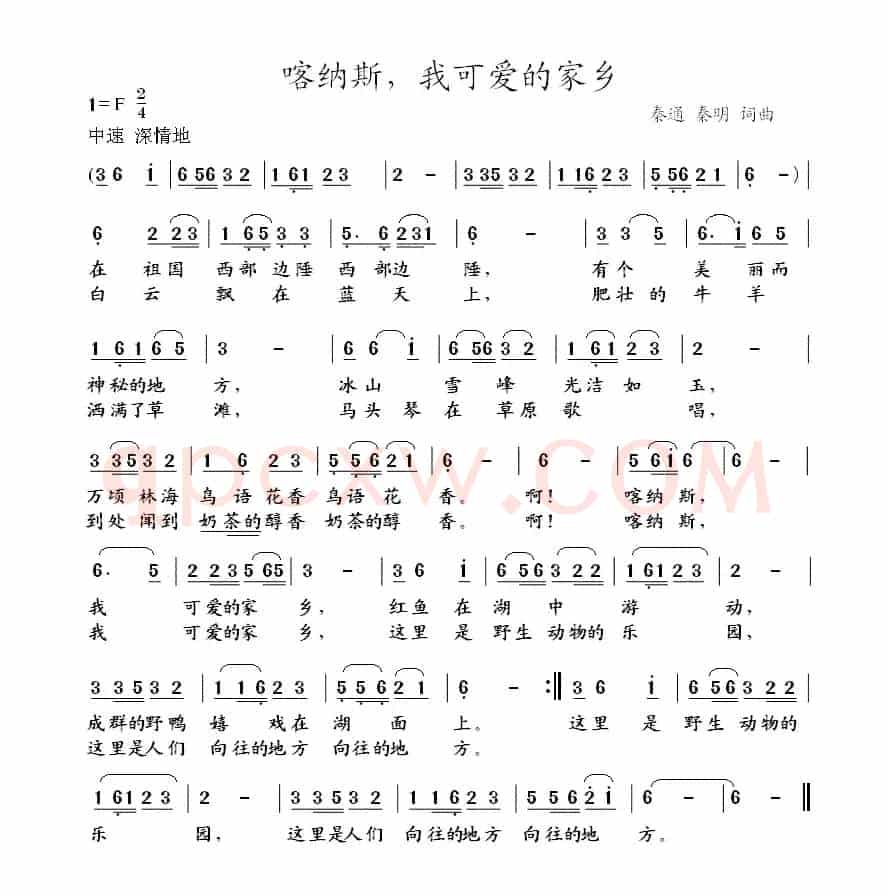 喀纳斯，我可爱的家乡
1=F 2/4
秦通 秦明 词曲
中速 深情地
(3 6 i | 6 56 3 2 | 1 61 2 3 | 2 - | 3 35 3 2 | 1 1 6 2 3 | 5 56 2 1 | 6 - ) |
6 2 23 | 1 65 3 3 | 5. 6 231 | 6 - | 3 3 5 | 6. i 6 5 |
在 祖国 西部 边陲 西部边 陲， 有个 美 丽而
白 云 飘 在 蓝 天 上， 肥壮的 牛 羊
1 6 1 6 5 | 3 - | 6 6 i | 6 56 3 2 | 1 61 2 3 | 2 - |
神秘的地 方， 冰山 雪 峰 光洁 如 玉，
洒满了草 滩， 马头 琴 在 草原 歌 唱，
gpcxw.COM
3 35 3 2 | 1 6 2 3 | 5 5 6 2 1 | 6 - | 6 - | 5 6i 6 | 6 - |
万顷 林海 鸟 语 花香 鸟语 花 香。 啊！ 喀纳 斯，
到处 闻到 奶茶的醇香 奶茶的醇 香。 啊！ 喀纳 斯，
6. 5 | 2 23 5 65 | 3 - | 3 6 i | 6 56 3 22 | 1 61 2 3 | 2 - |
我 可爱的家 乡， 红鱼 在 湖 中 游 动，
我 可爱的家 乡， 这里 是 野生 动物的 乐 园，
3 35 3 2 | 1 1 6 2 3 | 5 5 6 2 1 | 6 - :‖ 3 6 i | 6 56 3 22 |
成群的野鸭 嬉 戏在 湖 面 上。 这里 是 野生 动物的
这里是人们 向往的地方 向往的地 方。
1 61 2 3 | 2 - | 3 35 3 2 | 1 1 6 2 3 | 5 56 2 i | 6 - | 6 - ‖
乐 园， 这里是人们 向往的地方 向往的地 方。